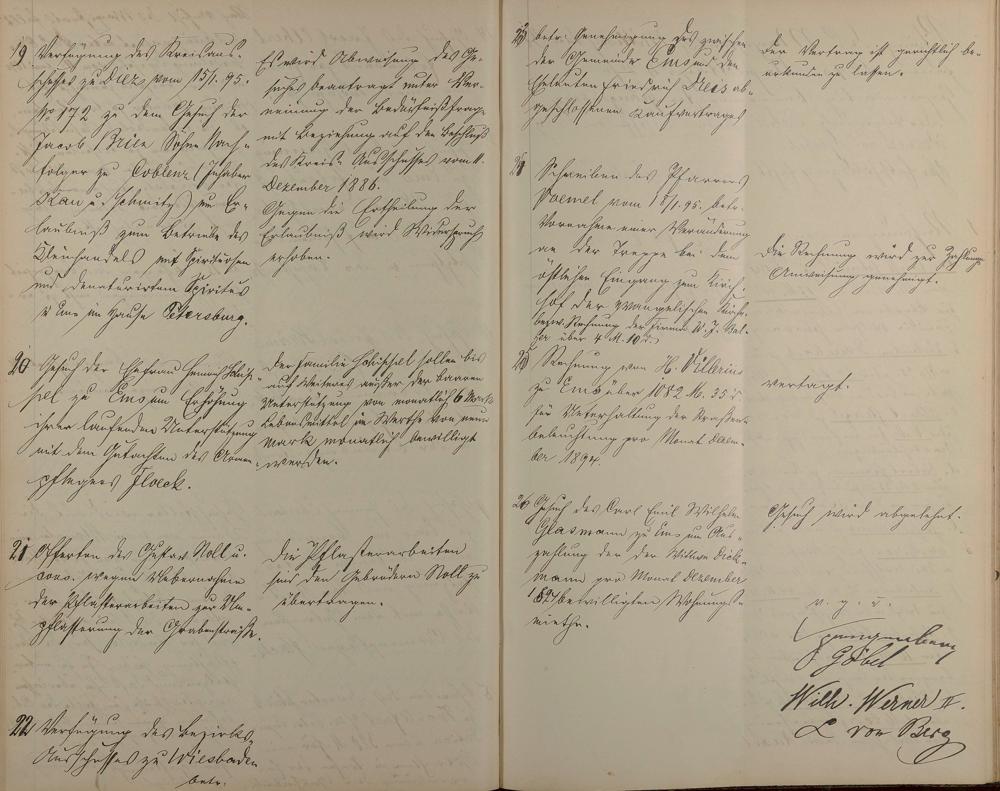 19 Verfügung des Kreisaus-
schusses zu Diez vom 15/1. 95.
No 172 zu dem Gesuch der
Jacob Brien Söhne Nach-
folger zu Coblenz (Inhaber
Kau u. Schmitz) um Er-
laubniß zum Betriebe des
Kleinhandels mit Spirituosen
und denaturirtem Spiritus
im Hause Petersburg.
Es wird Abweisung des Ge-
suches beantragt unter Ver-
neinung der Bedürfnißfrage
mit Beziehung auf den Beschluß
des Kreis-Ausschusses vom 11.
Dezember 1886.
Gegen die Ertheilung der
Erlaubniß wird Widerspruch
erhoben.
20 Gesuch der Ehefrau
zu Ems um Erhöhung
ihrer laufenden Unterstützung
mit dem Gutachten des Armen-
pflegers Floeck.
Der Familie sollen bis
auf Weiteres außer der baaren
Unterstützung von monatlich 6 Mark
Lebensmittel im Werthe von neun
Mark monatlich bewilligt
werden.
21 Offerten des Gustav Noll u.
Cons. wegen Uebernahme
der Pflasterarbeiten zur Um-
pflasterung der Grabenstraße.
Die Pflasterarbeiten
sind den Gebrüdern Noll zu
übertragen.
22 Verfügung des Bezirks-
Ausschusses zu Wiesbaden
betr.
23 betr. Genehmigung des zwischen
der Gemeinde Ems und den
Eheleuten Friedrich Dees ab-
geschlossenen Kaufvertrages
Der Vertrag ist gerichtlich be-
urkunden zu lassen.
24 Schreiben des Pfarrers
Voemel vom 15/1. 95. betr.
Vornahme einer Veränderung
an der Treppe bei dem
östlichen Eingang zum Kirch-
hof der evangelischen Kirche
bezw. Rechnung der Firma W. J.
über 4 M. 10 d.
Die Rechnung wird zur Zahlungs-
Anweisung genehmigt.
25 Rechnung von H.
zu Ems über 1082 M. 35 d
für Unterhaltung der Straßen-
beleuchtung pro Monat Dezem-
ber 1894.
vertagt.
26 Gesuch des Carl Emil Wilhelm
Glasmann zu Ems um Aus-
zahlung der der Wittwe Dick-
mann pro Monat Dezember
1894 bewilligten Wohnungs-
miethe.
Gesuch wird abgelehnt.
v. g. u.
Spangenberg
Göbel
Wilh. Werner II.
L von Berg